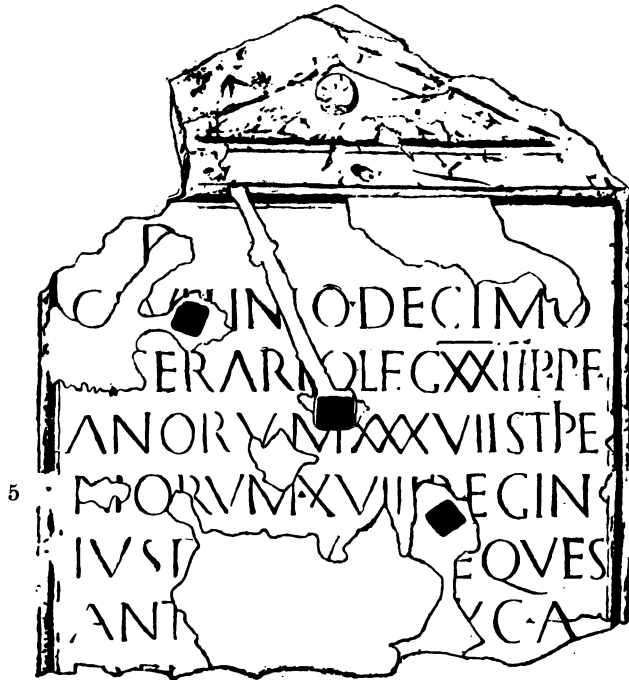 D
INIO·DECIMO
SERARIO LEG XXII P·P·F
ANORVM XXXVII STPE
5 ORVM·XVIII REGIN
IVST EQVES
ANT C·A